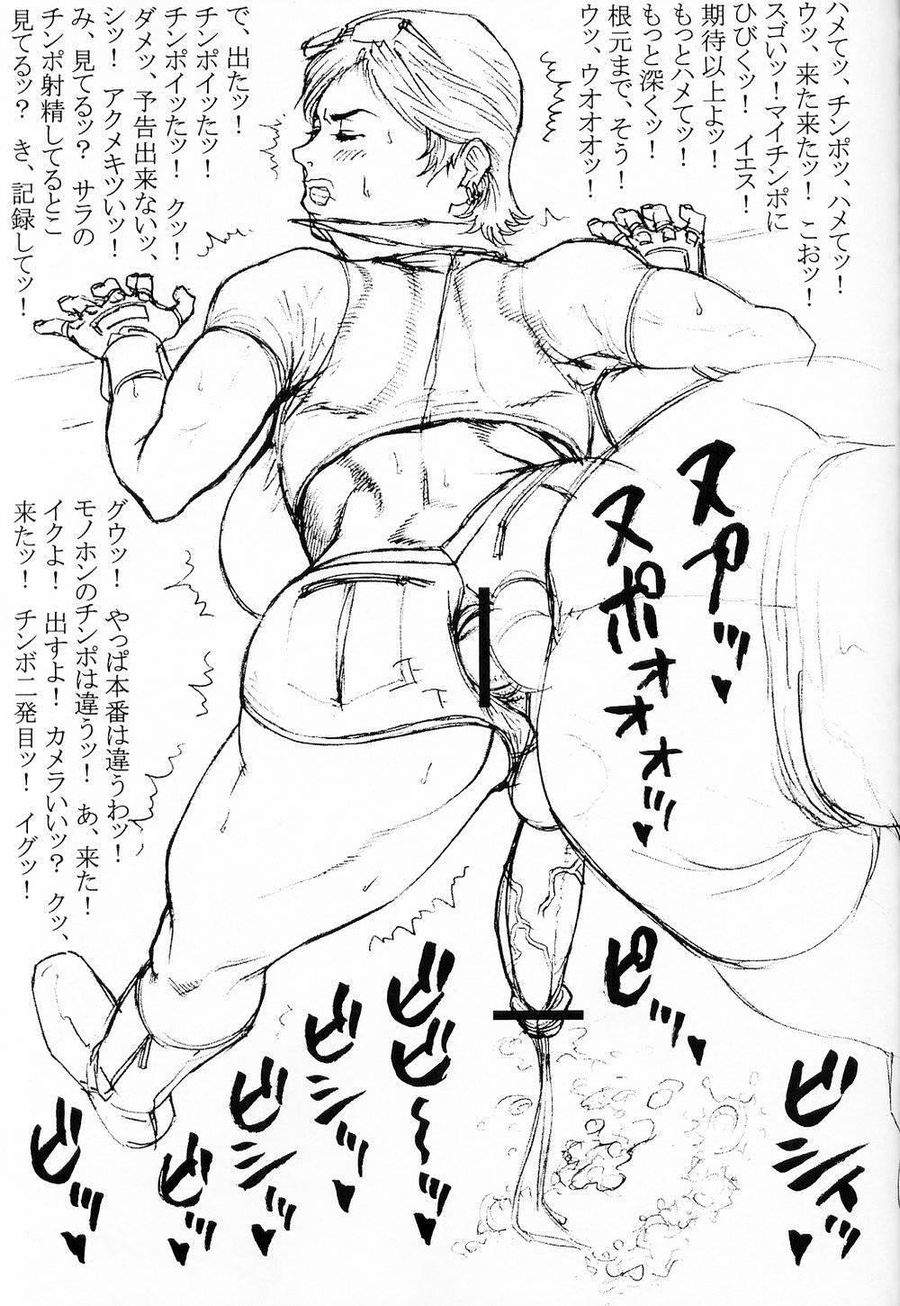 ハメてッ、チンポッ、ハメてッ！
ウッ、来た来たッ！ こおッ！
スゴいッ！マイチンポに
ひびくッ！ イエス！
期待以上よッ！
もっとハメてッ！
もっと深くッ！
根元まで、そう！
ウッ、ウオオオッ！
で、出たッ！
チンポイッたッ！
チンポイッたッ！ クッ！
ダメッ、予告出来ないッ、
シッ！ アクメキツいッ！
み、見てるッ？ サラの
チンポ射精してるとこ
見てるッ？ き、記録してッ！
ヌアッッ♥
ヌポォォォッッ♥
グウッ！ やっぱ本番は違うわッ！
モノホンのチンポは違うッ！ あ、来た！
イクよ！ 出すよ！ カメラいいッ？ クッ、
来たッ！ チンボ二発目ッ！ イグッ！
ピッッ♥
ビシィッ♥
ビビ〜ッッ♥
ビシッッ♥
ビシッッ♥
ビッッ♥
ビッッ♥